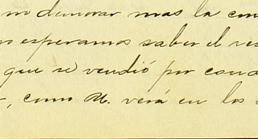 no demorar mas la con
esperamos saber el re
que se vendió por cond
, como U. verá en los